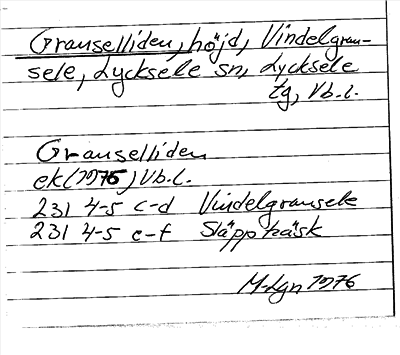 Granselliden, höjd, Vindelgran-
sele, Lycksele sn, Lycksele
tg, Vb.l.
Granselliden
ek (1975) Vb.l.
231 4-5 c-d Vindelgransele
231 4-5 e-f Släppträsk
M-Lgn 1976